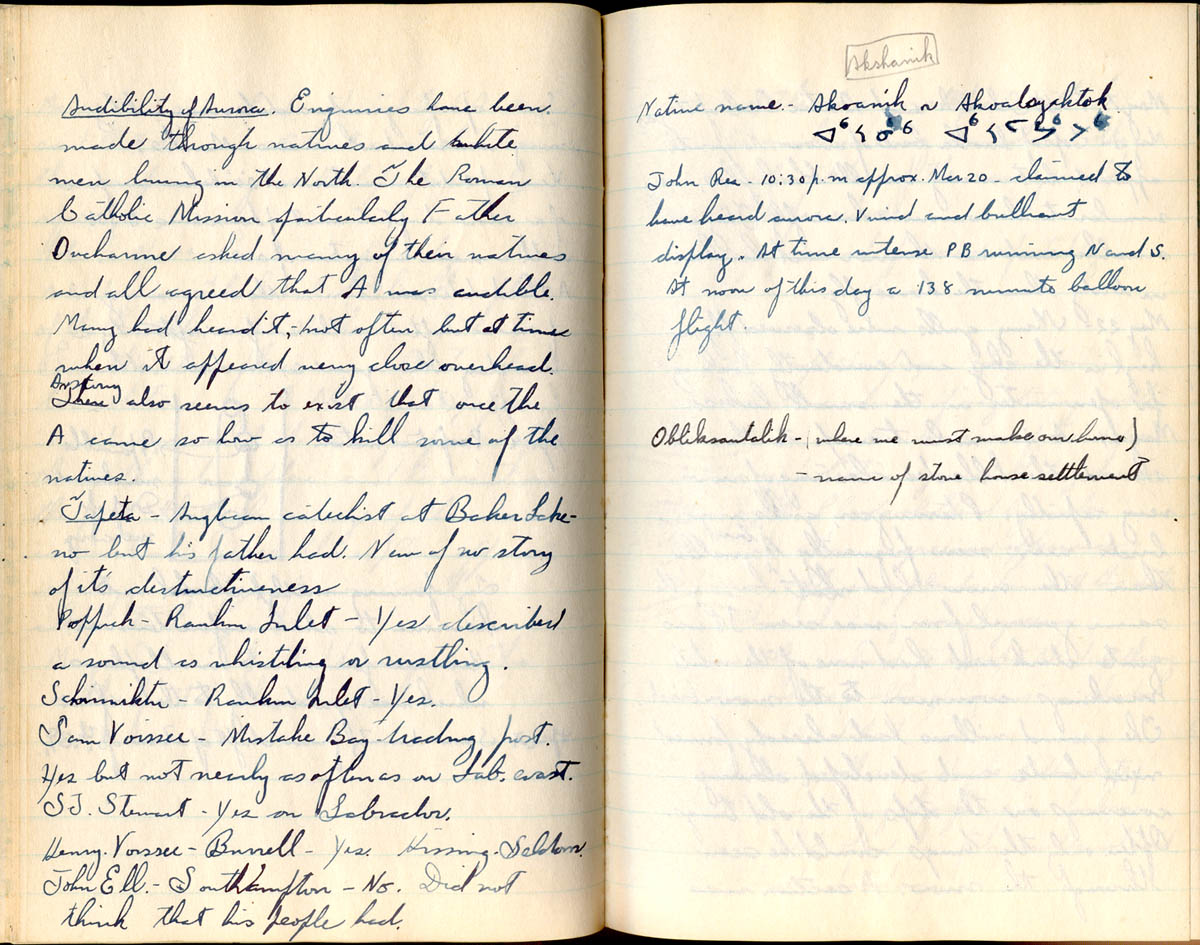 Audibility of Aurora. Enquiries have been
made through natives and white
men living in the North. The Roman
Catholic Mission particularly Father
Ducharme asked many of their natives
and all agreed that A was audible.
Many had heard it, - not often but at times
when it appeared very close overhead.
A story
There also seems to exist that once the
A came so low as to kill some of the
natives.
Tapeta - Anglican catechist at Baker Lake -
no but his father had. Knew of no story
of it's destructiveness
Poffuk - Rankin Inlet - Yes described
a sound as whistling or rustling.
- Rankin Inlet - Yes.
Sam Voissee - Mistake Bay trading post.
Yes but not nearly as often as on Lab. coast.
S.J. Stewart - Yes on Labrador.
Henry Voissee - Burwell - Yes. Hissing. Seldom.
John Ell. - Southampton - No. Did not
think that his people had.
Akshanik
Native name - Akoanik or
ᐊᒃᓴᓂᒃ
John Rea - 10:30 p.m approx. Mar 20 - claimed to
have heard aurora. Vivid and brilliant
display. At time intense PB running N and S.
At noon of this day a 138 minute balloon
flight.
Obliksautalik - (where we must make our home)
- name of stone house settlement